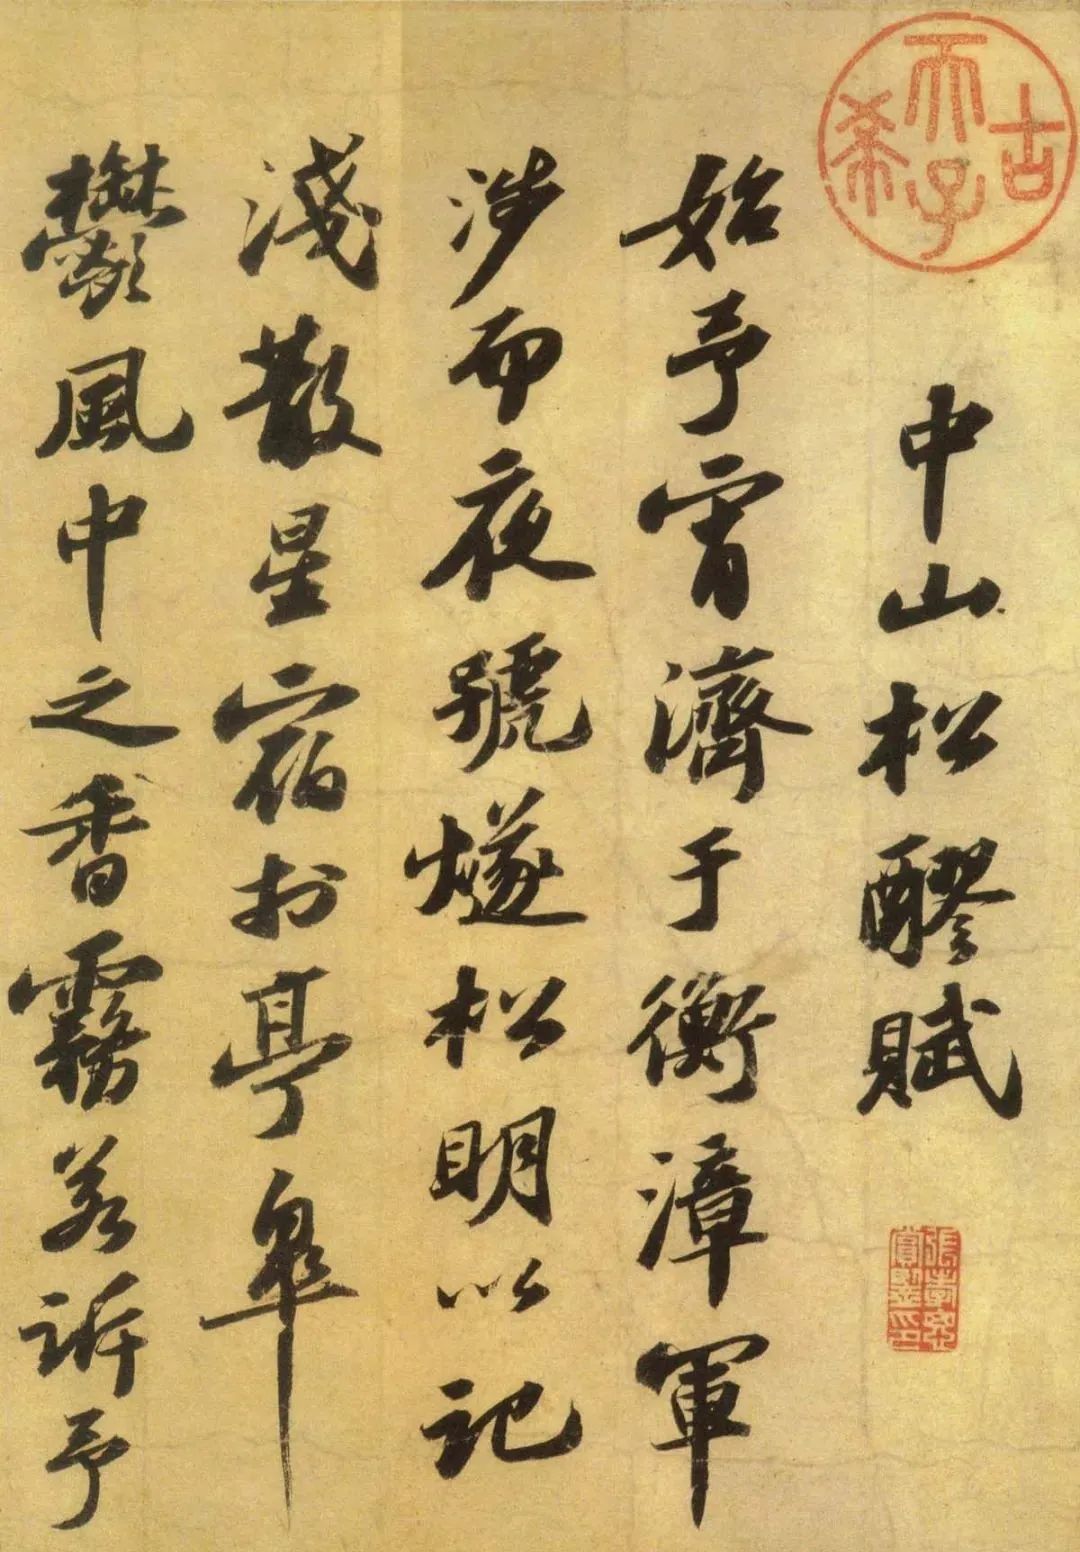 古希天子
中山松醪賦
始予宵濟于衡漳軍
涉而夜號燧松明以記
淺散星宿於亭皋
鬱風中之香霧若訴予
張孝思
賞鑒印